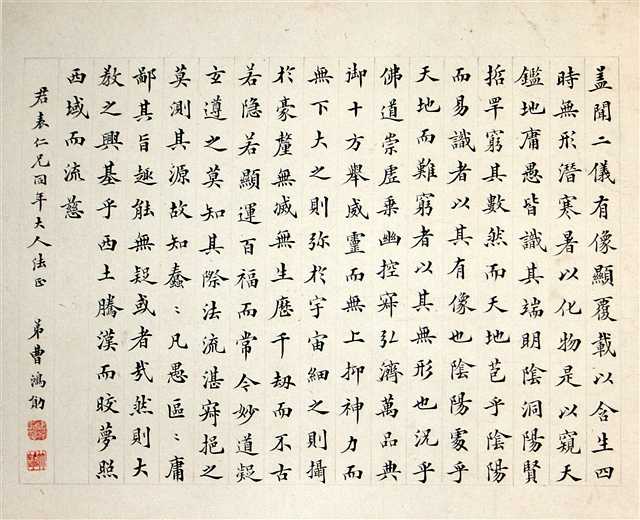 蓋聞二儀有像顯覆載以含生四
時無形潛寒暑以化物是以窺天
鑑地庸愚皆識其端明陰洞陽賢
哲罕窮其數然而天地苞乎陰陽
而易識者以其有像也陰陽處乎
天地而難窮者以其無形也況乎
佛道崇虛乗幽控寂弘濟萬品典
御十方舉威靈而無上抑神力而
無下大之則弥於宇宙細之則攝
於豪釐無滅無生歷千劫而不古
若隐若顯運百福而常今妙道凝
玄遵之莫知其際法流湛寂挹之
莫測其源故知蠢〻凡愚區〻庸
鄙其旨趣能無疑或者哉然則大
教之興基乎西土騰漢而皎夢照
西域而流慈
君表仁兄同年大人法正
弟曹鴻勛